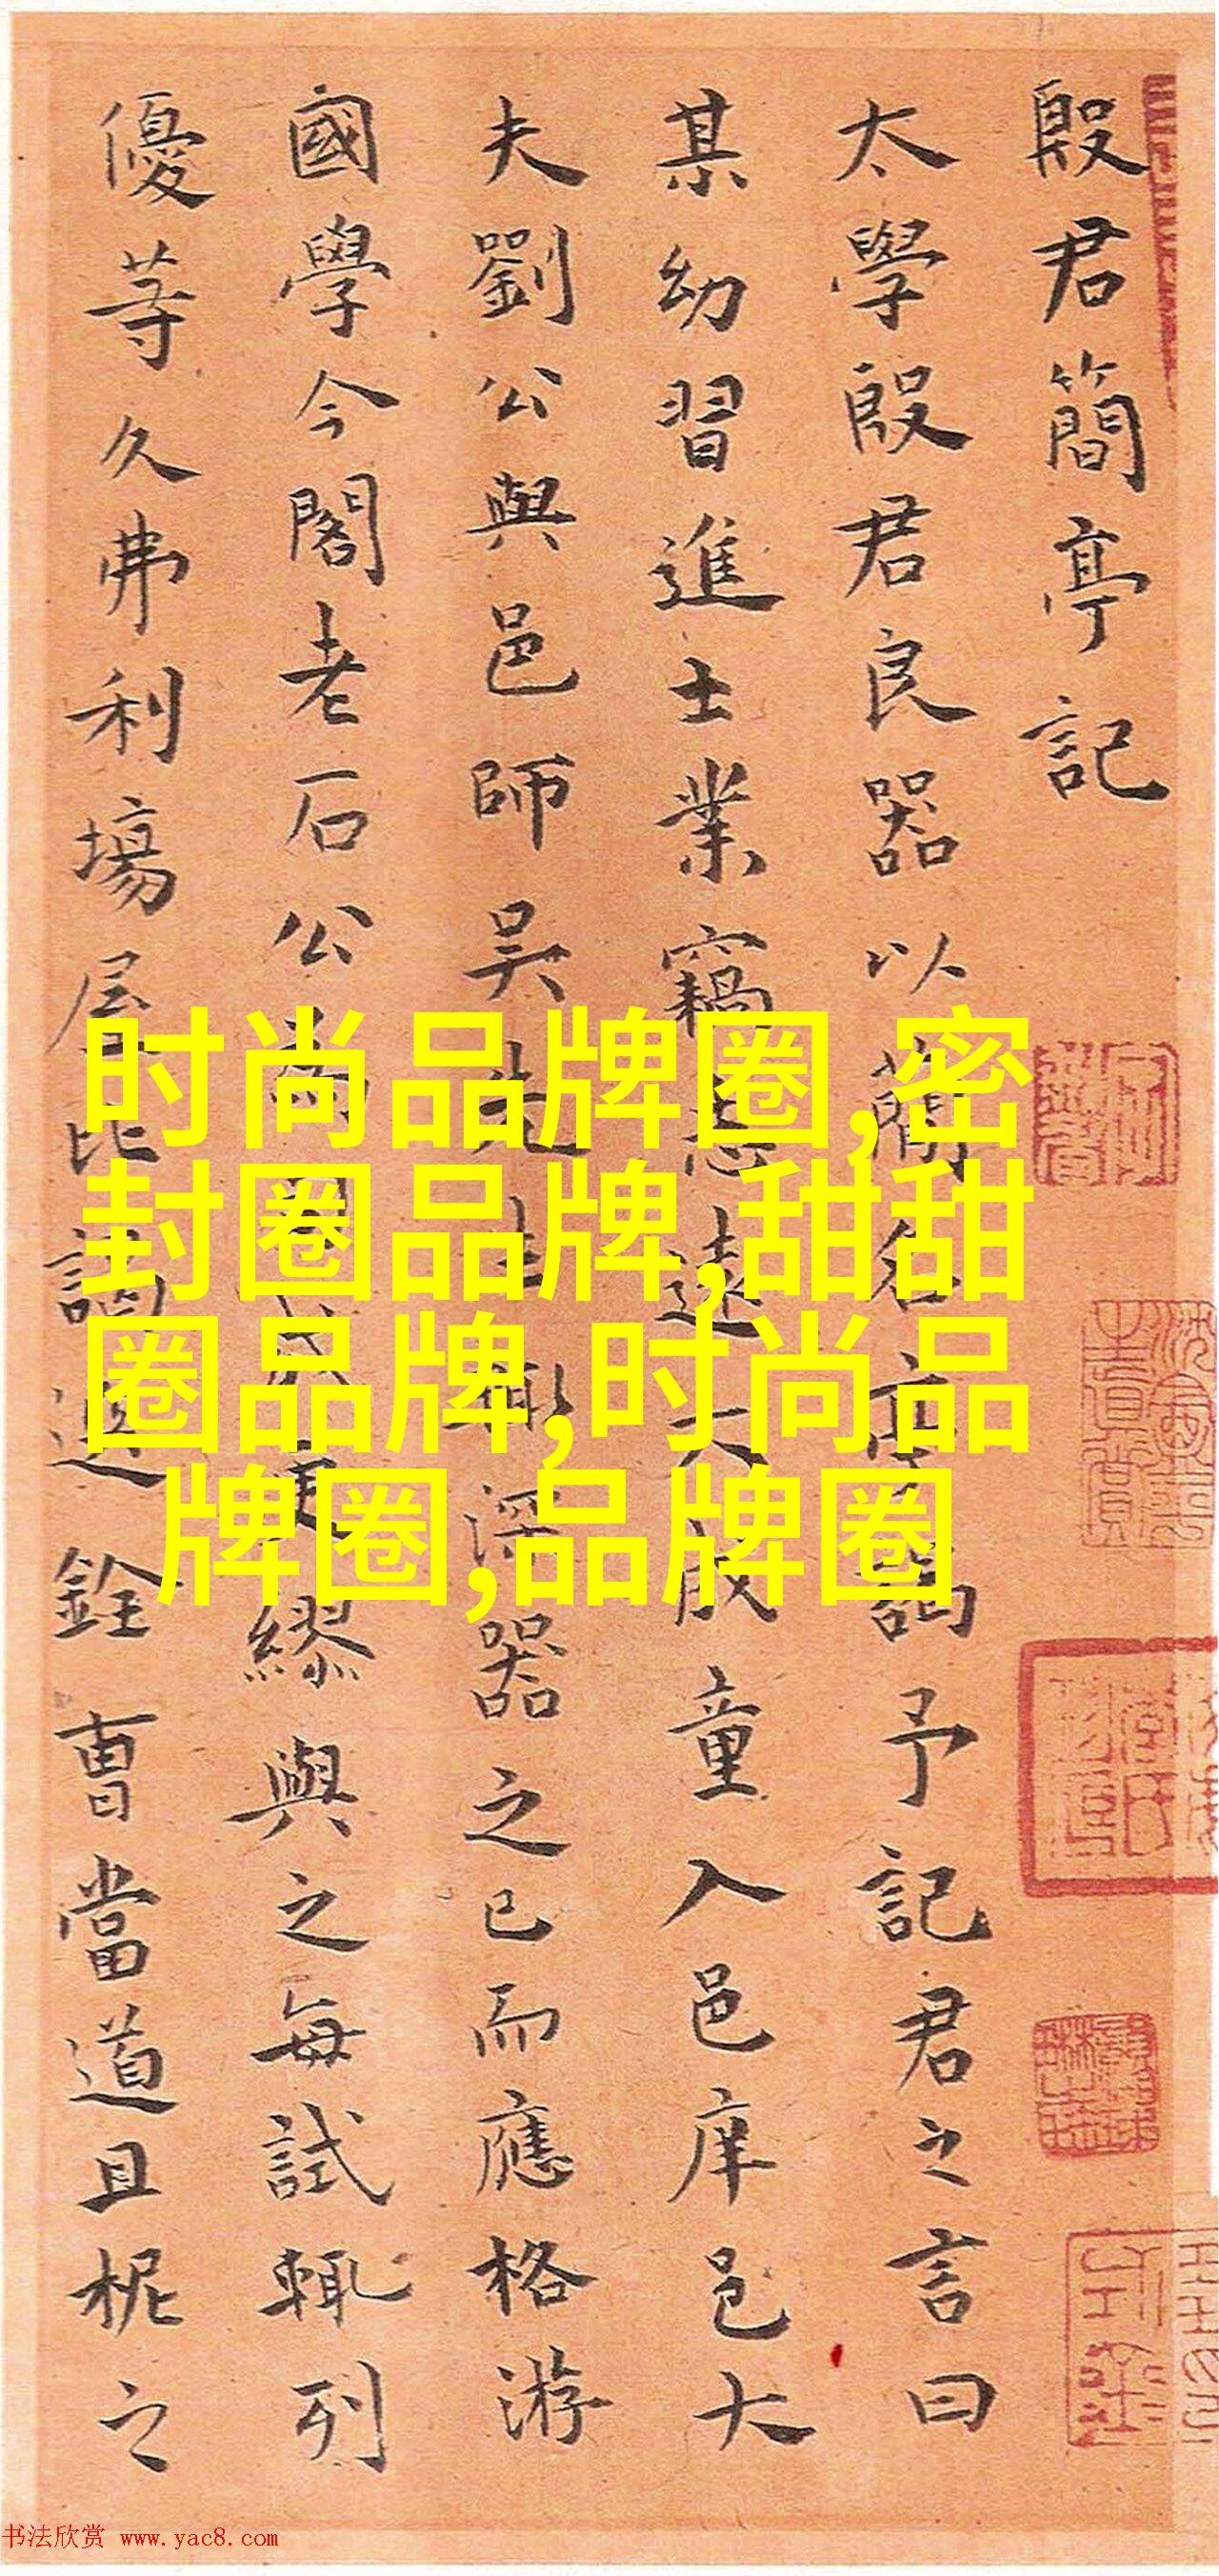 殷君簡亭記
太學殷君良器以簡名亭謁予記君之言曰
某幼習進士業竊志遠大成童入邑庠邑大
夫劉公與邑師吳先生輙深器之已而應格游
國學今閣老石公尚繆與之每試輙列
優等久弗利場屋比謁選銓曹當道且柅之
时尚品牌圈,密
封圈品牌,甜甜
圈品牌,时尚品
牌圈,品牌圈
书法欣赏 www.yac8.com